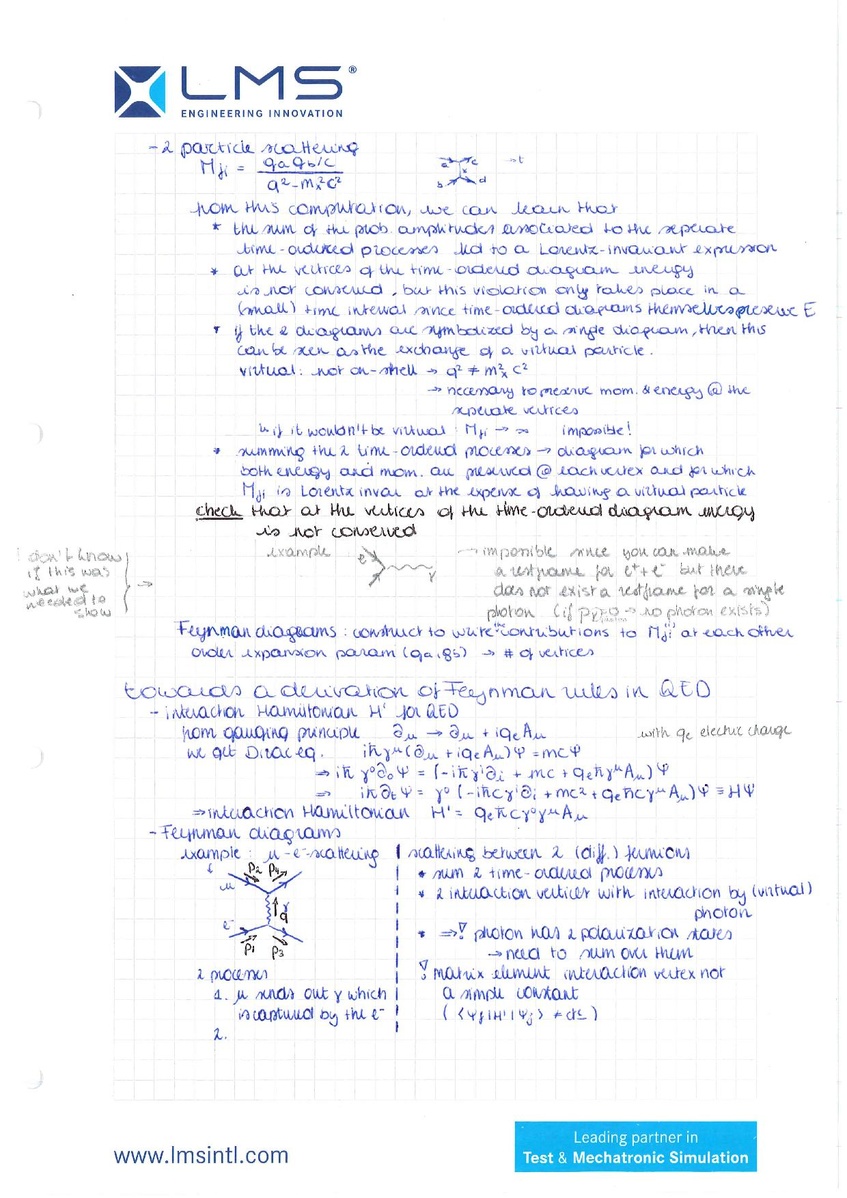 LMS®
ENGINEERING INNOVATION
- 2 particle scattering
Mji = gagb/c / q² - mx²c²
a c → t
x
b d
from this computation, we can learn that
* the sum of the prob. amplitudes associated to the seperate
time-ordered processes led to a Lorentz-invariant expression
* at the vertices of the time-ordered diagram energy
is not conserved, but this violation only takes place in a
(small) time interval since time-ordered diagrams themselves preserve E
* if the 2 diagrams are symbolized by a single diagram, then this
can be seen as the exchange of a virtual particle.
virtual: not on-shell → q² ≠ mx² c²
→ necessary to preserve mom. & energy @ the
seperate vertices
↳ if it wouldn't be virtual: Mji → ∞ impossible!
* summing the 2 time-ordered processes → diagram for which
both energy and mom. are preserved @ each vertex and for which
Mji is Lorentz invar at the expense of having a virtual particle
check that at the vertices of the time-ordered diagram energy
is not conserved
I don't know
if this was
what we
needed to
show
→
example e γ
→ impossible since you can make
a restframe for e⁺+e⁻ but there
does not exist a restframe for a single
photon (if → no photon exists)
Feynman diagrams: construct to write the contributions to Mji at each other
order expansion param (ga, gb) → # of vertices
towards a derivation of Feynman rules in QED
- interaction Hamiltonian H' for QED
from gauging principle ∂μ → ∂μ + iqeAμ with qe electric charge
we get Dirac eq. iħγᵘ(∂μ + iqeAμ)Ψ = mcΨ
⇒ iħ γ⁰∂₀Ψ = (-iħγⁱ∂i + mc + qeħγᵘAμ)Ψ
⇒ iħ∂tΨ = γ⁰(-iħcγⁱ∂i + mc² + qeħcγᵘAμ)Ψ ≡ HΨ
⇒ interaction Hamiltonian H' = qeħcγ⁰γᵘAμ
- Feynman diagrams
example: μ-e⁻-scattering
p2 p4
μ
γ
q
e⁻
p1 p3
2 processes
1. μ sends out γ which
is captured by the e⁻
2.
scattering between 2 (diff.) fermions
* sum 2 time-ordered processes
* 2 interaction vertices with interaction by (virtual)
photon
* ⇒! photon has 2 polarization states
→ need to sum over them
! matrix element interaction vertex not
a simple constant
(⟨Ψf|H'|Ψj⟩ ≠ cte)
www.lmsintl.com
Leading partner in
Test & Mechatronic Simulation